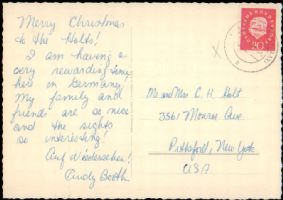 Merry Christmas
to the Holts!
I am having a
very rewarding time
here in Germany.
My family and
friends are so nice
and the sights
so interesting!
Auf Wiedersehen!
Cindy Booth
20
Mr and Mrs C. H. Holt
3561 Monroe Ave.
Pittsford, New York
USA